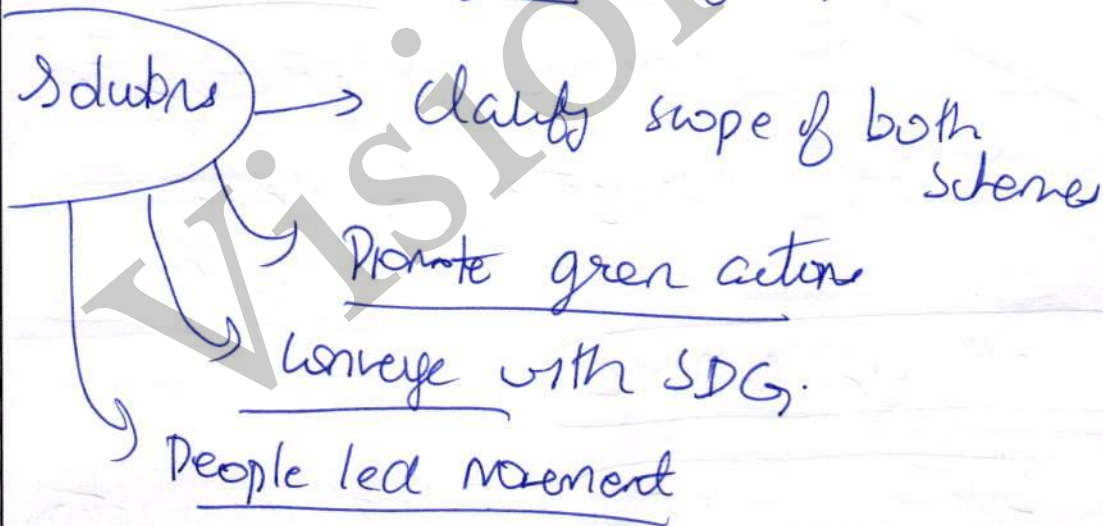 Solutions
Clarify scope of both
schemes
Promote green actions
Converge with SDG.
People led movement
Vision